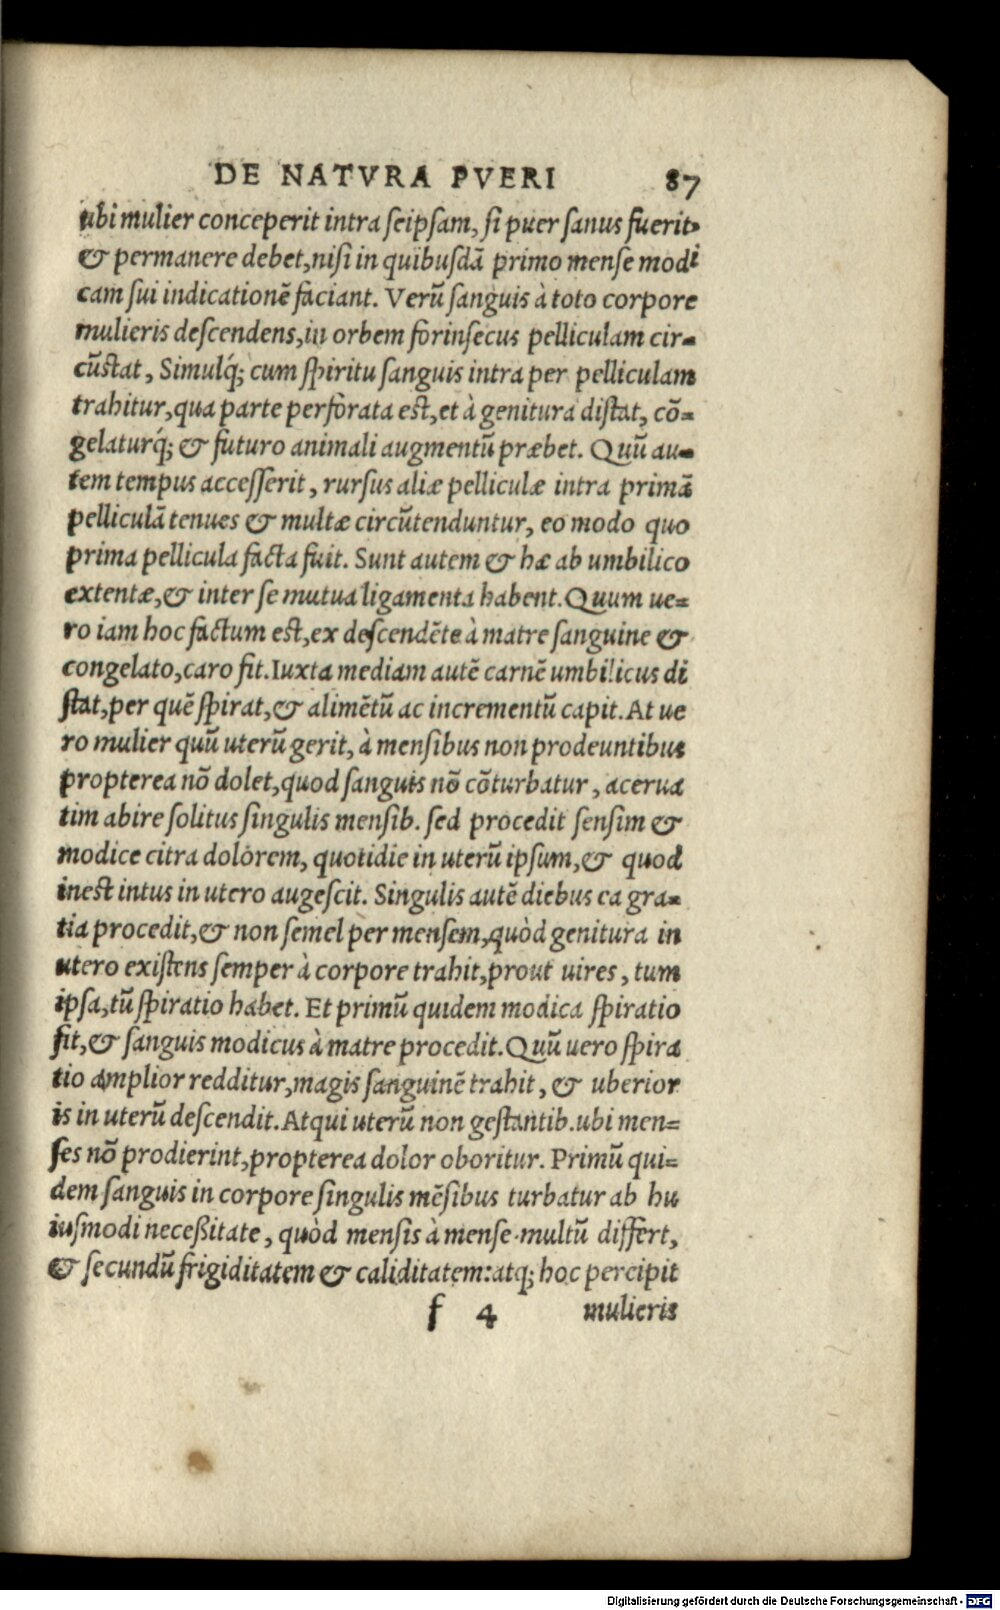 DE NATVRA PVERI 87
ubi mulier conceperit intra ſeipſam, ſi puer ſanus fuerit,
& permanere debet, niſi in quibuſdā primo menſe modi
cam ſui indicationē faciant. Verū ſanguis à toto corpore
mulieris deſcendens, in orbem forinſecus pelliculam cir-
cūſtat, Simulq́; cum ſpiritu ſanguis intra per pelliculam
trahitur, qua parte perforata eſt, et à genitura diſtat, cō-
gelaturq́; & futuro animali augmentū præbet. Quū au-
tem tempus acceſſerit, rurſus aliæ pelliculæ intra primā
pelliculā tenues & multæ circūtenduntur, eo modo quo
prima pellicula facta fuit. Sunt autem & hæ ab umbilico
extentæ, & inter ſe mutua ligamenta habent. Quum ue-
ro iam hoc factum eſt, ex deſcendēte à matre ſanguine &
congelato, caro fit. Iuxta mediam autē carnē umbilicus di
ſtat, per quē ſpirat, & alimētū ac incrementū capit. At ue
ro mulier quū uterū gerit, à menſibus non prodeuntibus
propterea nō dolet, quod ſanguis nō cōturbatur, acerua
tim abire ſolitus ſingulis menſib. ſed procedit ſenſim &
modice citra dolorem, quotidie in uterū ipſum, & quod
ineſt intus in utero augeſcit. Singulis autē diebus ea gra-
tia procedit, & non ſemel per menſem, quòd genitura in
utero exiſtens ſemper à corpore trahit, prout uires, tum
ipſa, tū ſpiratio habet. Et primū quidem modica ſpiratio
fit, & ſanguis modicus à matre procedit. Quū uero ſpira
tio amplior redditur, magis ſanguinē trahit, & uberior
is in uterū deſcendit. Atqui uterū non geſtantib. ubi men-
ſes nō prodierint, propterea dolor oboritur. Primū qui-
dem ſanguis in corpore ſingulis mēſibus turbatur ab hu
iuſmodi neceßitate, quòd menſis à menſe multū differt,
& ſecundū frigiditatem & caliditatem: atq; hoc percipit
f 4 mulieris
Digitalisierung gefördert durch die Deutsche Forschungsgemeinschaft - DFG